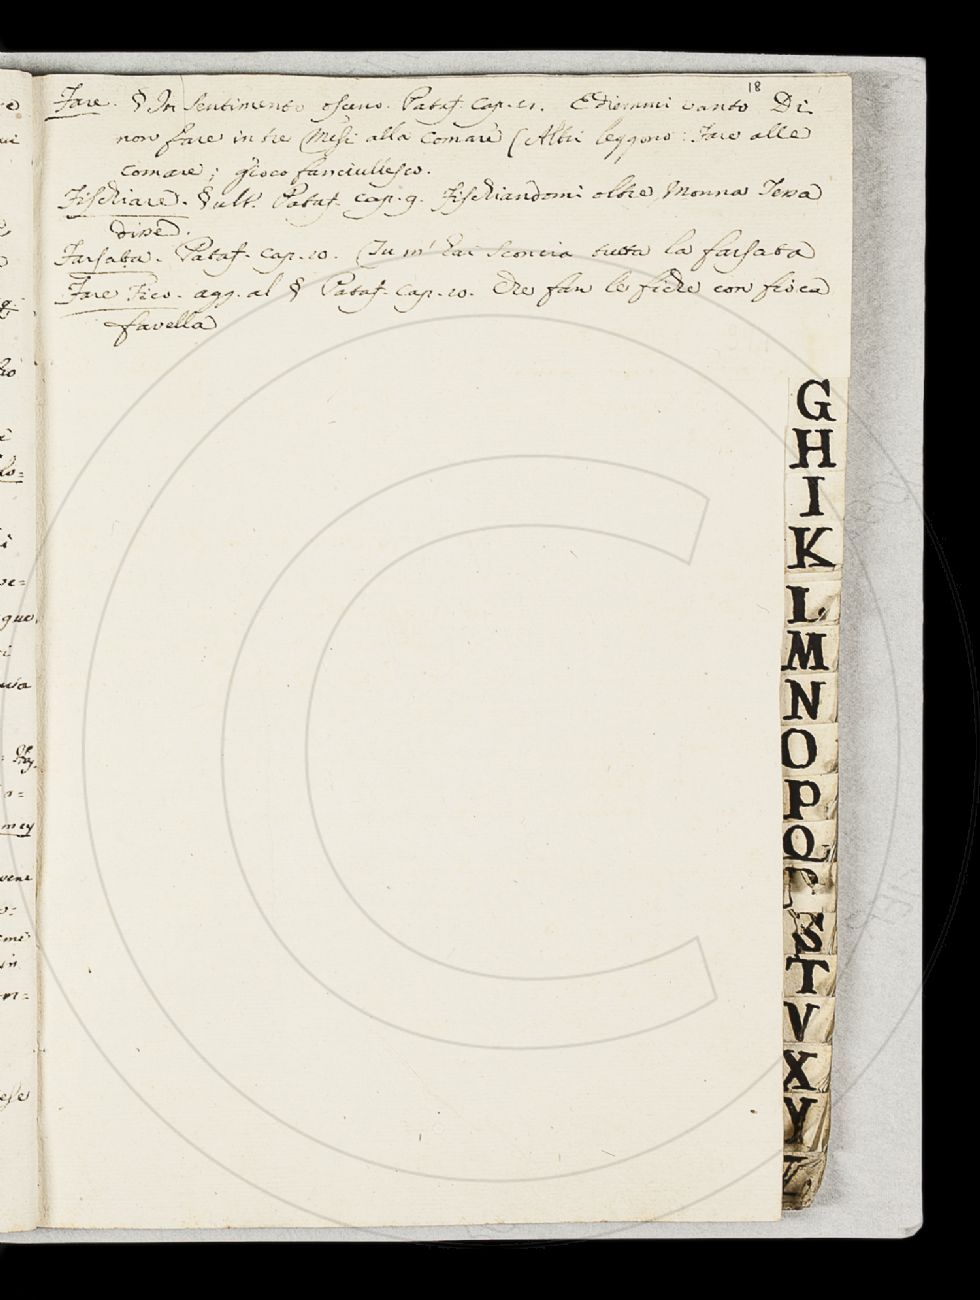 18
Fare. § In sentimento osceno. Pataf. Cap. 21. E diemmi vanto Di
non fare in tre Mesi alla Comare (Altri leggono: Fare alle
comare; gioco fanciullesco.
Fischiare. § ult. Pataf. Cap. 9. Fischiandomi oltre Monna Tessa
disse.
Farsata. Pataf. Cap. 10. Tu m' hai sconcia tutta la farsata
Fare Fico. agg. al § Pataf. Cap. 10. Che fan le fiche con fioca
favella
G
H
I
K
L
M
N
O
P
Q
S
T
V
X
Y
que
vene